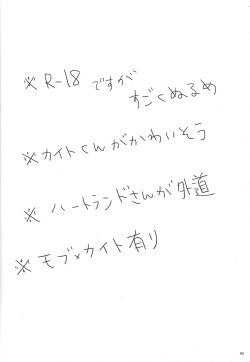 ※ R-18 ですが
すごくぬるめ
※カイトくんがかわいそう
※ ハートランドさんが外道
※ モブ×カイト有り